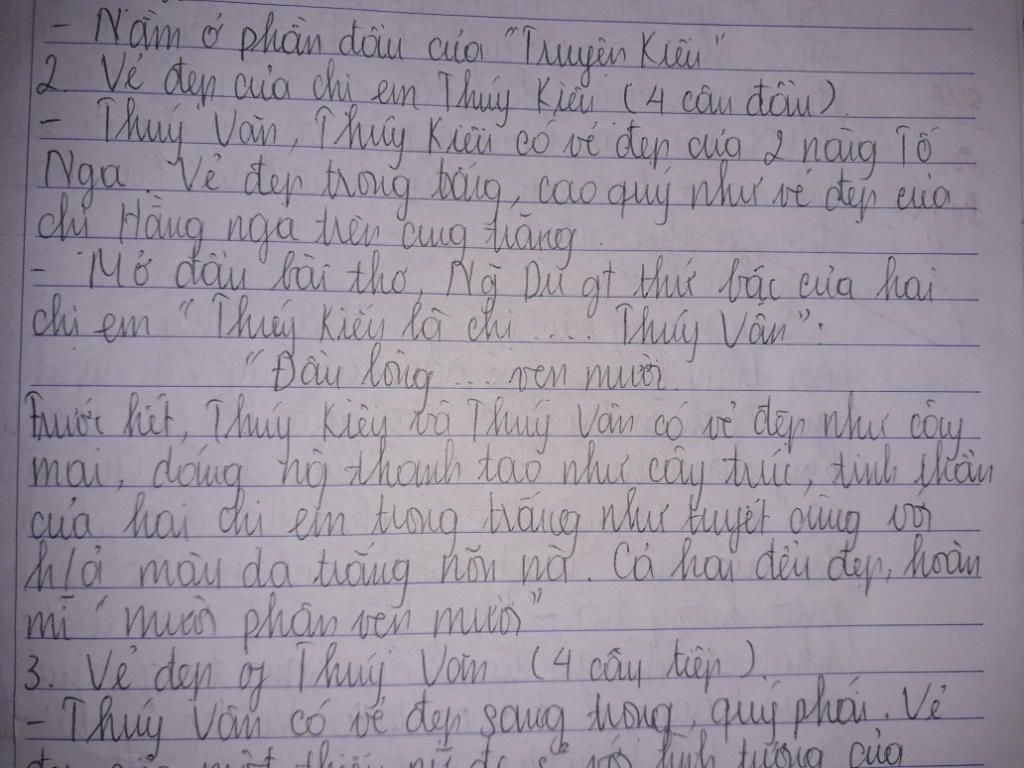 - Nằm ở phần đầu của "Truyện Kiều"
2. Vẻ đẹp của chị em Thúy Kiều (4 câu đầu)
- Thúy Vân, Thúy Kiều có vẻ đẹp của 2 nàng Tố
Nga. Vẻ đẹp trong trắng, cao quý như vẻ đẹp của
chị Hằng nga trên cung trăng.
- Mở đầu bài thơ, Ng Du gt thứ bậc của hai
chị em "Thúy Kiều là chị .... Thúy Vân".
"Đầu lòng ... vẹn mười
Trước hết, Thúy Kiều và Thúy Vân có vẻ đẹp như cây
mai, dáng ng thanh tao như cây trúc, tinh thần
của hai chị em trong trắng như tuyết cùng với
h/ả màu da trắng nõn nà. Cả hai đều đẹp, hoàn
mĩ "mười phân vẹn mười"
3. Vẻ đẹp of Thúy Vân (4 câu tiếp).
- Thúy Vân có vẻ đẹp sang trong, quý phái. Vẻ
đẹp của một thiếu nữ với hình tượng của